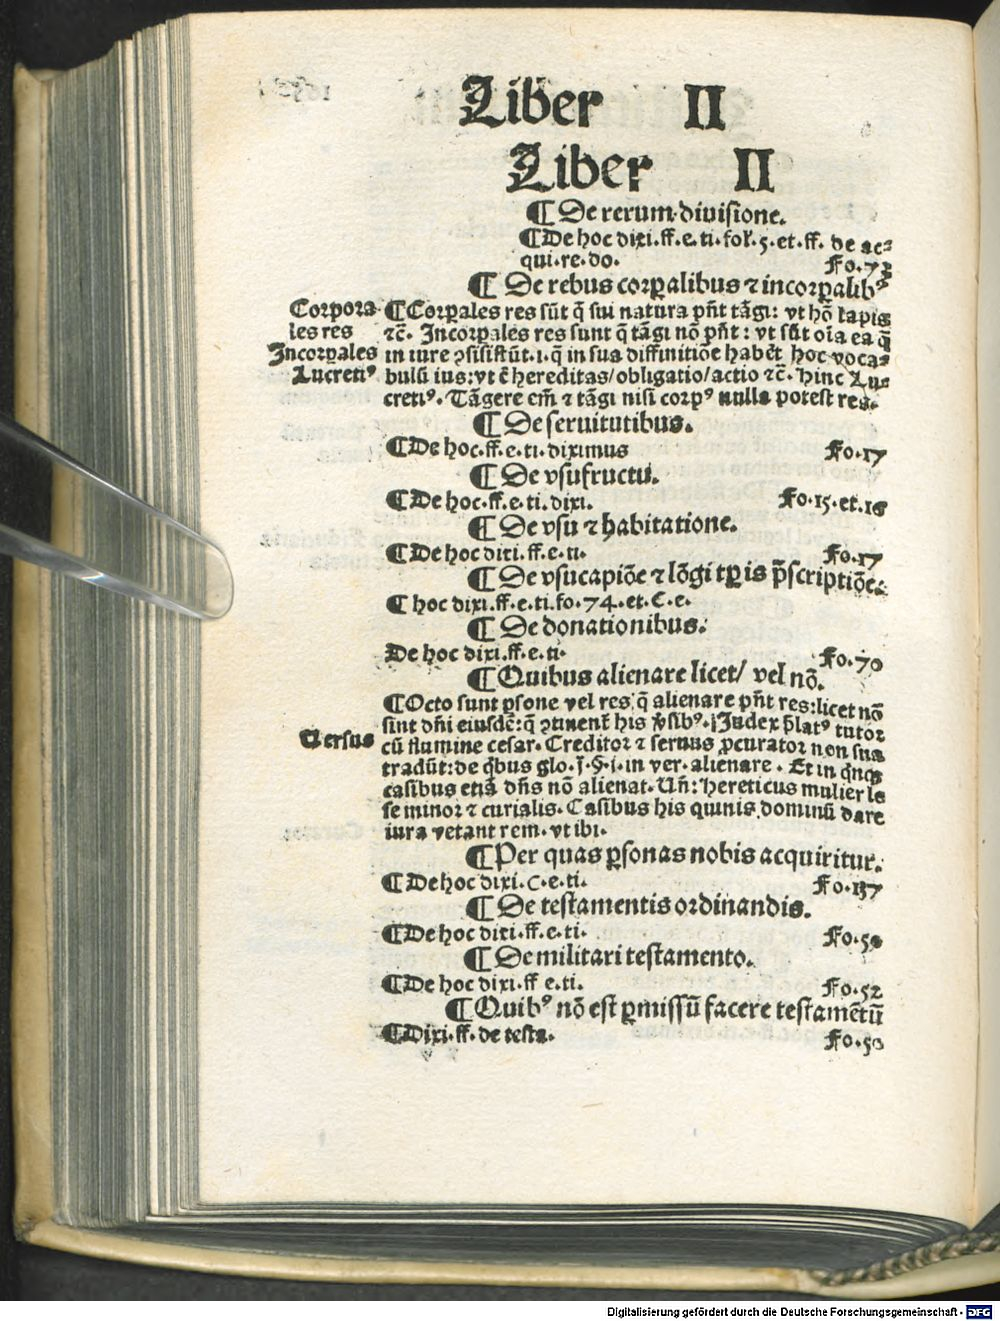 Liber II
Liber II
¶ De rerum diuisione.
¶ De hoc dixi.ff.e.ti.fol.5.et.ff. de ac⸗
qui.re.do. Fo.73
¶ De rebus corꝑalibus ⁊ incorꝑalibꝰ
Corpora
les res
Incorpales
Lucretiꝰ
¶ Corꝑales res sūt q̄ sui natura pn̄t tāgi: vt hō lapis
⁊c̄. Incorꝑales res sunt q̄ tāgi nō pn̄t: vt sūt oīa ea q̄
in iure ꝯsistūt.i.q̄ in sua diffinitiōe habēt hoc voca⸗
bulū ius:vt ē hereditas/obligatio/actio ⁊c̄. Hinc Lu⸗
cretiꝰ. Tāgere em̄ ⁊ tāgi nisi corpꝰ nulla potest res.
¶ De seruitutibus.
¶ De hoc.ff.e.ti.diximus Fo.17
¶ De vsufructu.
¶ De hoc.ff.e.ti.dixi. Fo.15.et.16
¶ De vsu ⁊ habitatione.
¶ De hoc dixi.ff.e.ti. Fo.17
¶ De vsucapiōe ⁊ lōgi tꝑis p̄scriptiōe.
¶ hoc dixi.ff.e.ti.fo.74.et.C.e.
¶ De donationibus.
De hoc dixi.ff.e.ti. Fo.70
¶ Quibus alienare licet/ vel nō.
Versus
¶ Octo sunt ꝑsone vel res q̄ alienare pn̄t res:licet nō
sint dn̄i eiusdē:q̄ ꝯtinent̄ his v̄sibꝰ. Iudex p̄latꝰ tutor
cū flumine cesar. Creditor ⁊ seruus ꝓcurator non sua
tradūt:de q̄bus glo.j.§.i.in ver.alienare. Et in q̄nqꝫ
casibus etiā dn̄s nō alienat. Vn̄: hereticus mulier le
se minor ⁊ curialis. Casibus his quinis dominū dare
iura vetant rem. vt ibi.
¶ Per quas ꝑsonas nobis acquiritur.
¶ De hoc dixi.C.e.ti. Fo.137
¶ De testamentis ordinandis.
¶ De hoc dixi.ff.e.ti. Fo.50
¶ De militari testamento.
¶ De hoc dixi.ff e.ti. Fo.52
¶ Quibꝰ nō est ꝑmissū facere testamētū
¶ Dixi.ff.de testa. Fo.50
Digitalisierung gefördert durch die Deutsche Forschungsgemeinschaft - DFG